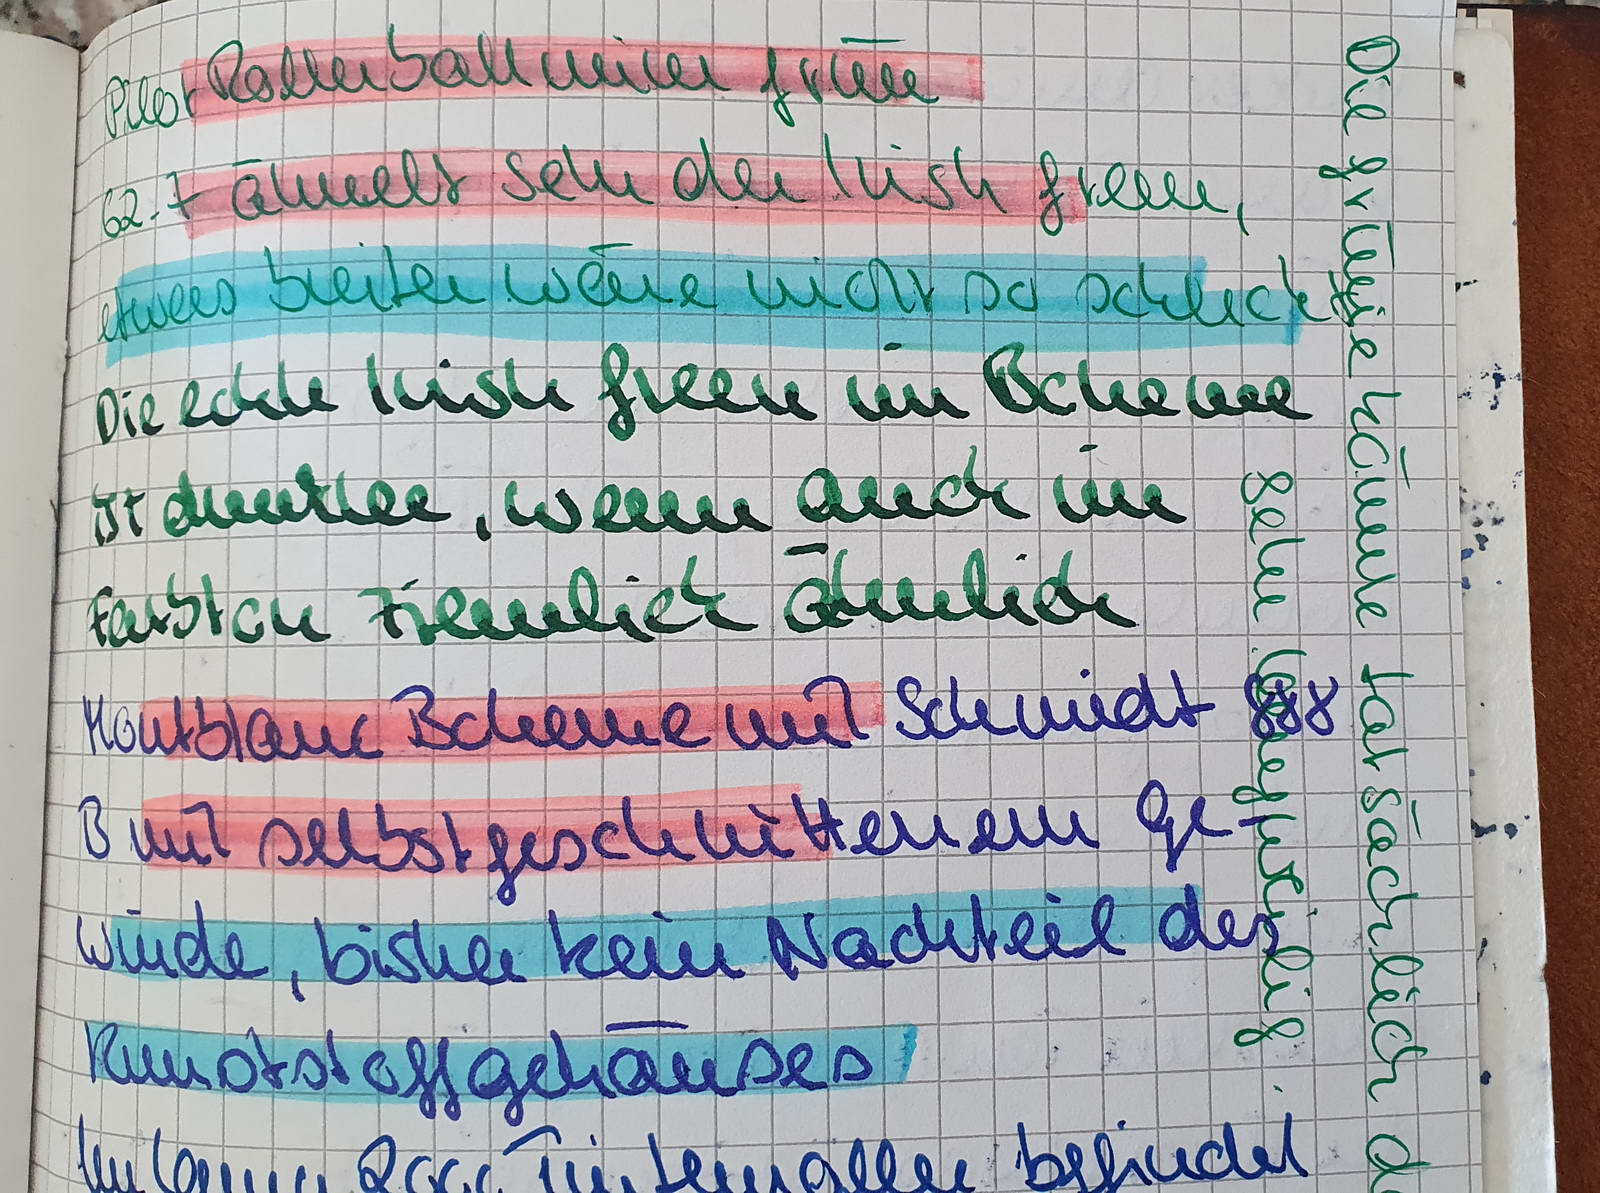 Pilot Rollerballmine grün
G2-7 ähnelt sehr der Irish green,
etwas breiter wäre nicht so schlecht
Die echte Irish green im Boheme
ist dunkler, wenn auch im
Farbton ziemlich ähnlich
Montblanc Boheme mit Schmidt 888
B mit selbstgeschnittenem Ge-
winde, bisher kein Nachteil des
Kunststoffgehäuses
Im Lamy 2000 Tintenroller befindet
Die grüne könnte tatsächlich d
sehr langfristig.